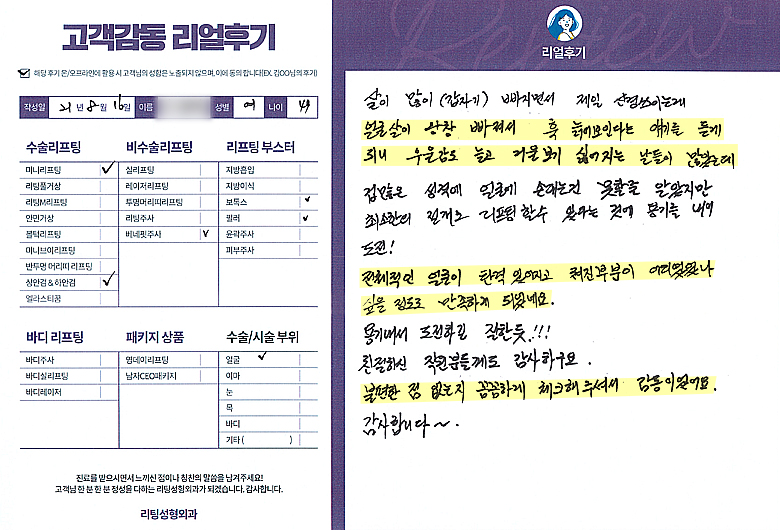 고객감동 리얼후기
해당 후기 온/오프라인에 활용 시 고객님의 성함은 노출되지 않으며, 이에 동의 합니다(EX. 김OO님의 후기)
작성일 21년 8월 16일 이름 성별 여 나이 44
수술리프팅
미니리프팅
리팅풀거상
리팅M리프팅
안면거상
볼턱리프팅
미니브이리프팅
반투명 머리띠 리프팅
상안검 & 하안검
얼라스티꿈
비수술리프팅
실리프팅
레이저리프팅
투명머리띠리프팅
리팅주사
베네핏주사
리프팅 부스터
지방흡입
지방이식
보톡스
필러
윤곽주사
피부주사
바디 리프팅
바디주사
바디실리프팅
바디레이저
패키지 상품
영데이리프팅
남자CEO패키지
수술/시술 부위
얼굴
이마
눈
목
바디
기타 ( )
진료를 받으시면서 느끼신 점이나 칭찬의 말씀을 남겨주세요!
고객님 한 분 한 분 정성을 다하는 리팅성형외과가 되겠습니다. 감사합니다.
리팅성형외과
Review
리얼후기
살이 많이 (갑자기) 빠지면서 제일 신경쓰이는게
얼굴살이 왕창 빠져서 훅 늙어보인다는 얘기를 듣게
되니 우울감도 늘고 거울보기 싫어지는 날들이 많았는데
겁많은 성격에 얼굴에 손대는건 못할줄 알았지만
최소한의 절개로 리프팅 할수 있다는 것에 용기를 내어
도전!
전체적인 얼굴이 탄력 있어지고 쳐진부분이 어디있었나
싶을 정도로 만족하게 되었네요.
용기내서 도전하길 잘한듯.!!!
친절하신 직원분들께도 감사하구요.
불편한 점 없는지 꼼꼼하게 체크해주셔서 감동이었어요.
감사합니다~.